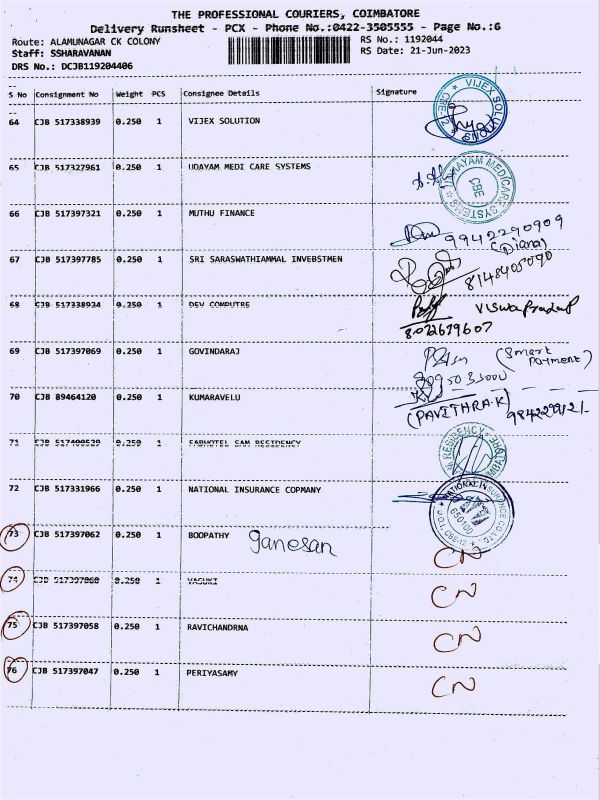 THE PROFESSIONAL COURIERS, COIMBATORE
Delivery Runsheet - PCX - Phone No.:0422-3505555 - Page No.:6
Route: ALAMUNAGAR CK COLONY RS No.: 1192044
Staff: SSHARAVANAN RS Date: 21-Jun-2023
DRS No.: DCJB119204406
S No Consignment No Weight PCS Consignee Details Signature
64 CJB 517338939 0.250 1 VIJEX SOLUTION
VIJEX SOLUTIONS CBE-12
65 CJB 517327961 0.250 1 UDAYAM MEDI CARE SYSTEMS
UDAYAM MEDICARE SYSTEMS CBE
66 CJB 517397321 0.250 1 MUTHU FINANCE
9942290909
(Diana)
67 CJB 517397785 0.250 1 SRI SARASWATHIAMMAL INVEBSTMEN
8148405090
68 CJB 517338924 0.250 1 DEV COMPUTRE
8022679607
69 CJB 517397069 0.250 1 GOVINDARAJ
(Smart Payment)
70 CJB 89464120 0.250 1 KUMARAVELU
(PAVITHRA.K)
71 CJB 517400529 0.250 1 FABHOTEL SAM RESIDENCY
RESIDENCY
72 CJB 517331966 0.250 1 NATIONAL INSURANCE COPMANY
NATIONAL INSURANCE CO.LTD.
73 CJB 517397062 0.250 1 BOOPATHY ganesan CN
74 CJB 517397060 0.250 1 VASUKI CN
75 CJB 517397058 0.250 1 RAVICHANDRNA CN
76 CJB 517397047 0.250 1 PERIYASAMY CN